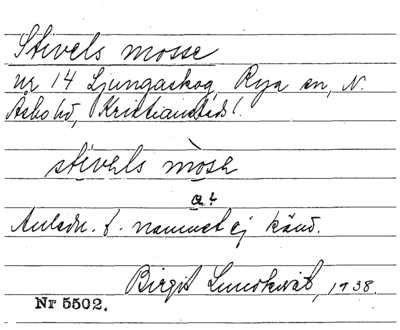 Stivels mosse
nr 14 Ljungaskog, Rya sn, N.
Åsbo hd, Kristianstads l.
stivels mòse
Anledn. t. namnet ej känd.
Birgit Lundkvist, 1938.
Nr 5502.